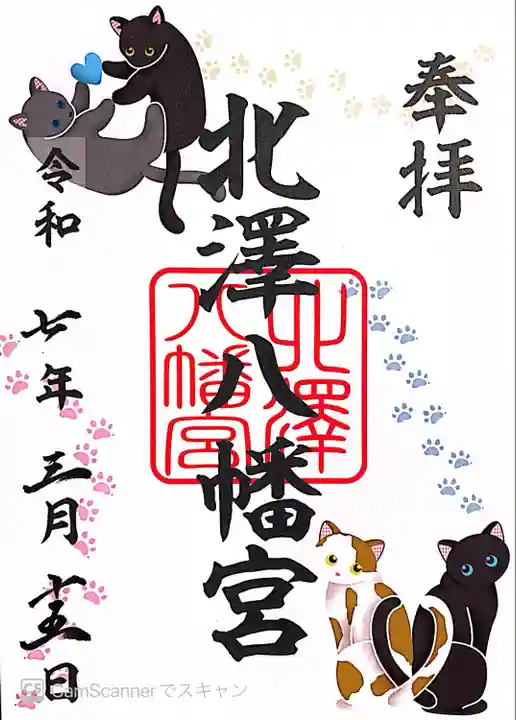 奉拝
北澤八幡宮
北澤
八幡宮
令和 七年 三月 十五日
CS CamScannerでスキャン